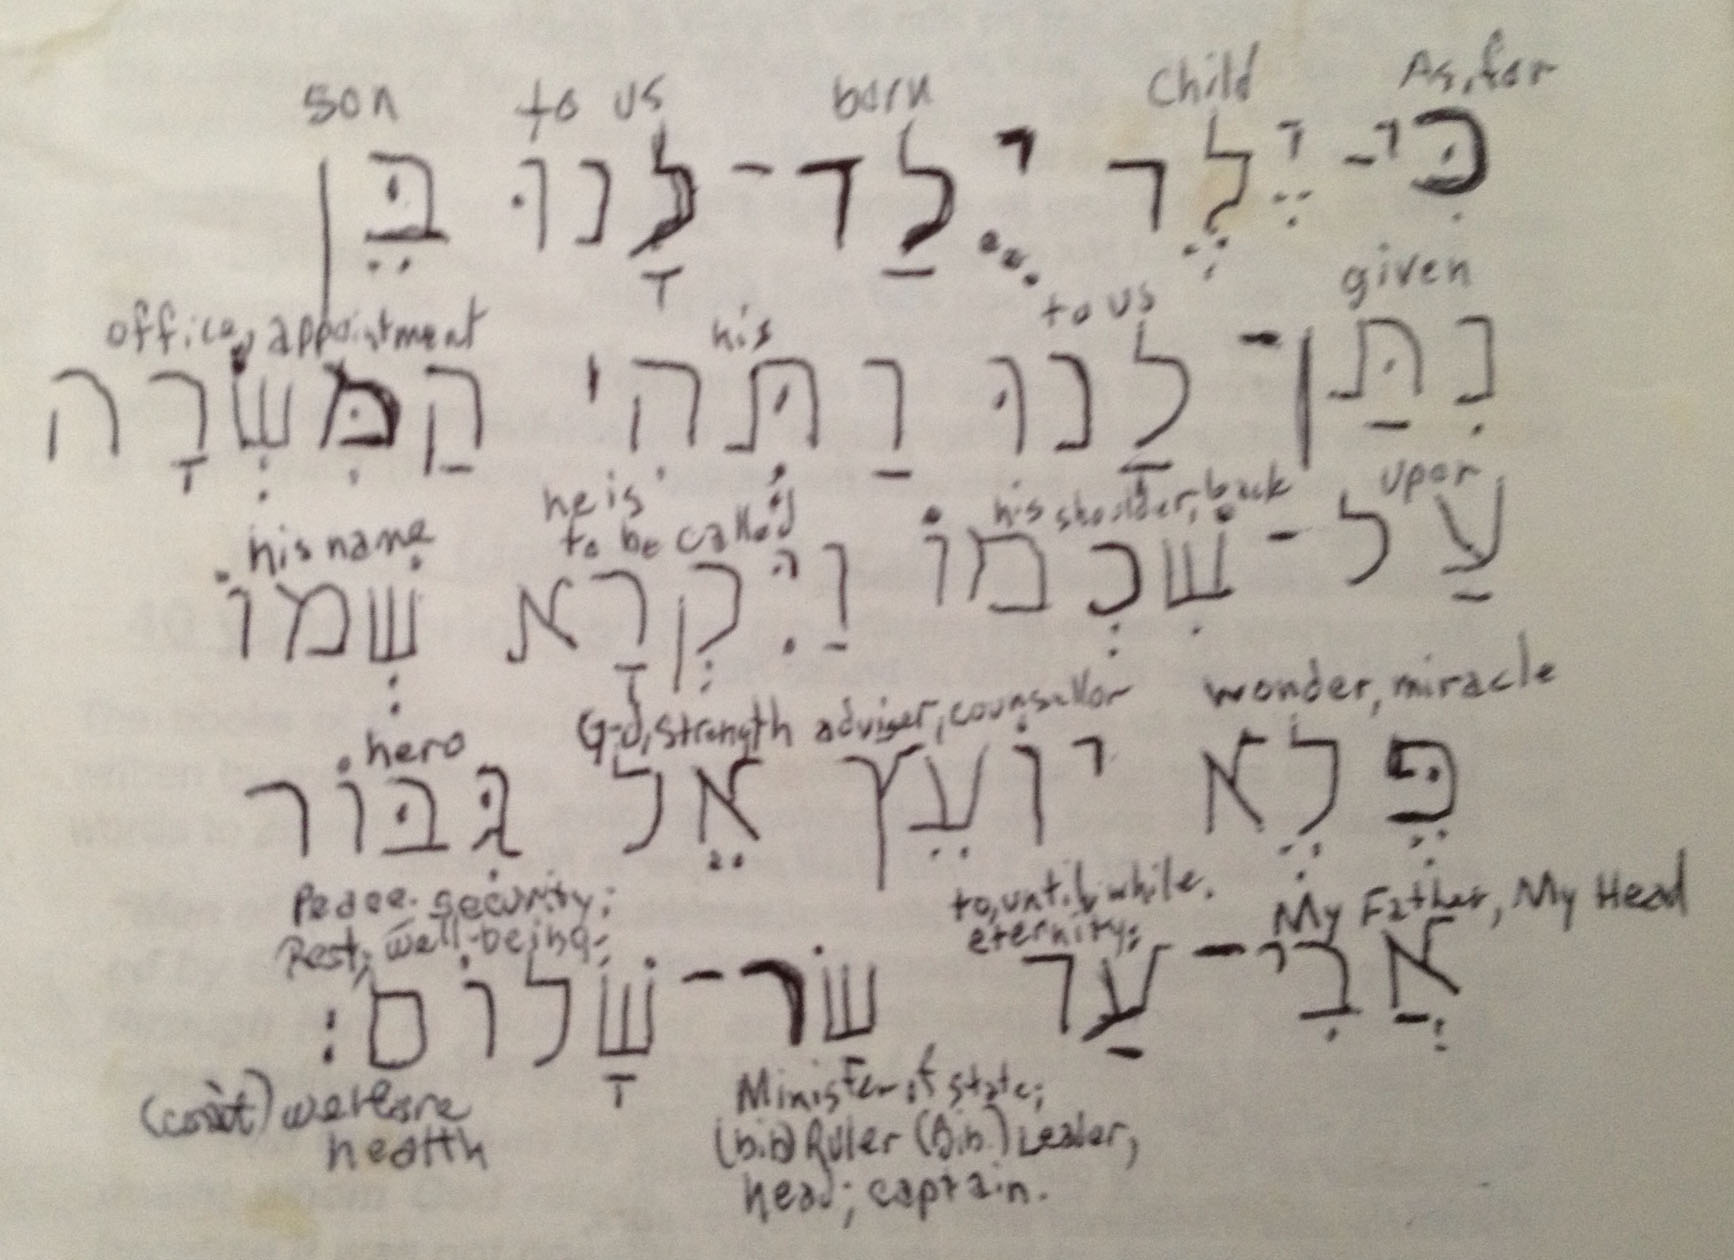 son to us born Child As, for
כִּי-יֶלֶד יֻלַּד-לָנוּ בֵּן
to us given
נִתַּן-לָנוּ וַתְּהִי הַמִּשְׂרָה
office, appointment his
his shoulder, back upon
עַל-שִׁכְמוֹ וַיִּקְרָא שְׁמוֹ
his name he is to be called
wonder, miracle
פֶּלֶא יוֹעֵץ אֵל גִּבּוֹר
hero G-d, strength adviser, counsellor
to, until, while. eternity; My Father, My Head
אֲבִי-עַד שׂר-שָׁלוֹם:
Peace. security; Rest, well-being;
(const) welfare health
Minister of state;
(bib) Ruler (Bib.) Leader,
head; captain.